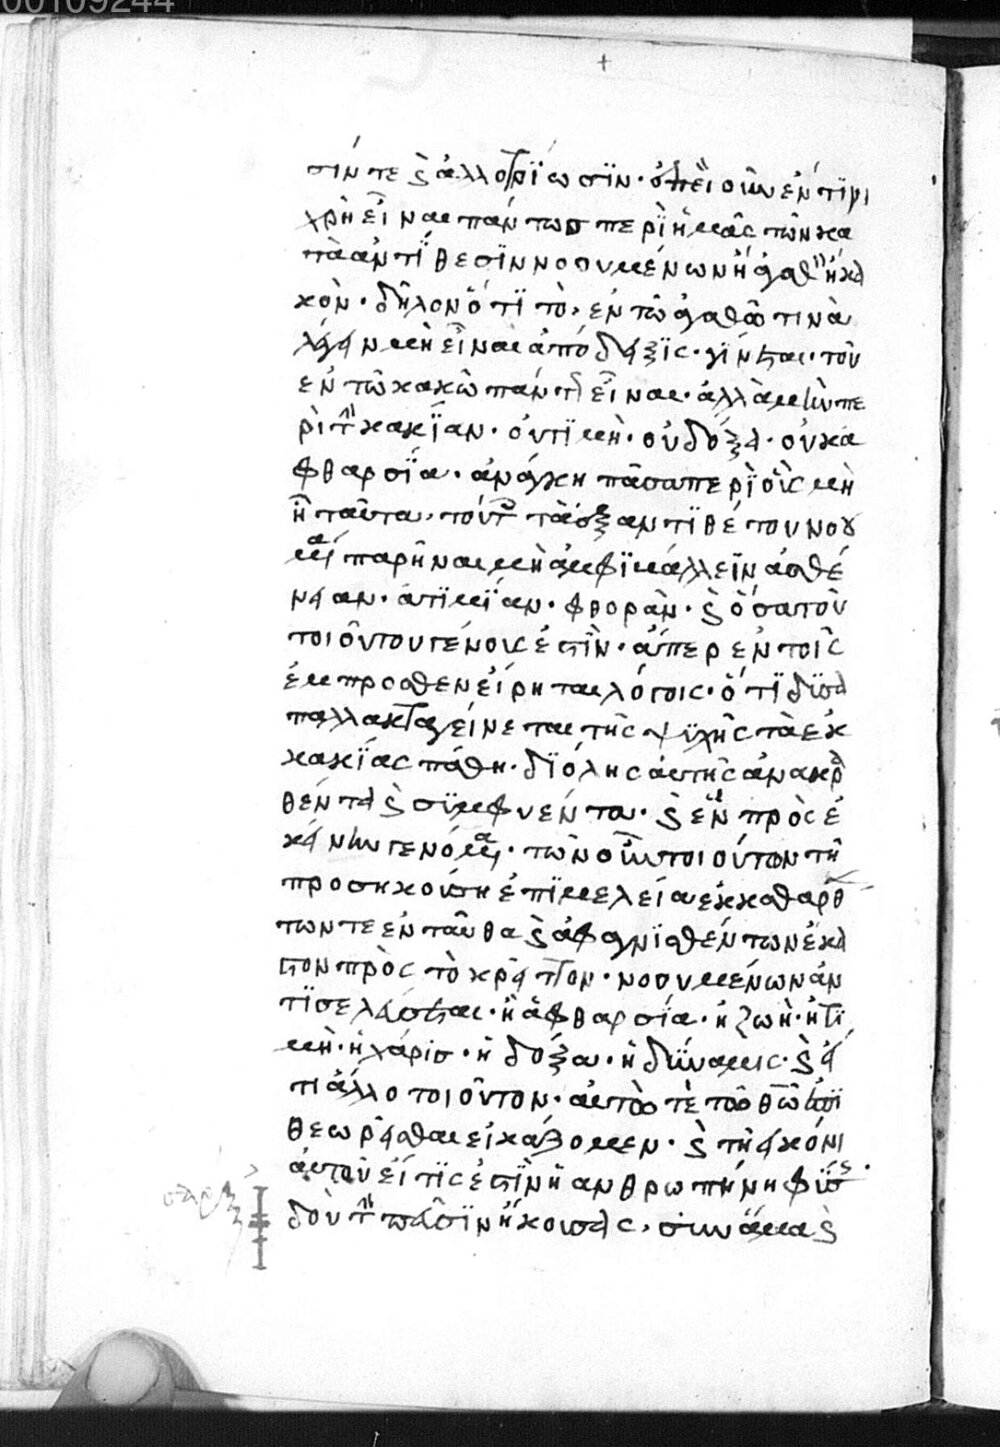 00109244
σίν τε καὶ ἀλλοτρίωσιν· ἐπεὶ οὖν ἔν τινι
χρὴ εἶναι πάντως περὶ ἡμᾶς τῶν κα
τὰ ἀντίθεσιν νοουμένων ἢ ἀγαθὸν ἢ κα
κὸν· δῆλον ὅτι τὸ, ἐν τῷ ἀγαθῷ τινὰ
λέγειν μὴ εἶναι ἀπόδειξις γίνεται τοῦ
ἐν τῷ κακῷ πάντως εἶναι· ἀλλὰ μὴν πε
ρὶ τὴν κακίαν· οὐ τιμὴ· οὐ δόξα· οὐκ ἀ
φθαρσία· ἀνάγκη πᾶσα περὶ οἷς μὴ
ᾖ ταῦτα, τούτοις τὰ ἐξ ἀντιθέτου νοού
μενα παρεῖναι μὴ ἀμφιβάλλειν ἀσθέ
νειαν· ἀτιμίαν· φθορὰν· καὶ ὅσα τοῦ
τοιούτου γένους ἐστὶν· ἅπερ ἐν τοῖς
ἔμπροσθεν εἴρηται λόγοις· ὅτι δυσα
πάλλακτα γείνεται τῆς ψυχῆς τὰ ἐκ
κακίας πάθη· δι' ὅλης αὐτῆς ἀνακρα
θέντα καὶ συμφυέντα· καὶ ἓν πρὸς ἐ
κείνην γενόμενα· τῶν οὖν τοιούτων τῇ
προσηκούσῃ ἐπιμελείᾳ ἐκκαθαρθέν
των τε ἐνταῦθα καὶ ἀφανισθέντων ἕκα
στον πρὸς τὸ κρεῖττον· νοουμένων ἀν
τισελεύσεται· ἡ ἀφθαρσία· ἡ ζωὴ· ἡ τι
μὴ· ἡ χάρις· ἡ δόξα· ἡ δύναμις· καὶ εἴ
τι ἄλλο τοιοῦτον· αὐτῷ τε τῷ θεῷ ἐπι
θεωρεῖσθαι εἰκάζομεν· καὶ τῇ εἰκόνι
αὐτοῦ εἴ τις ἐστὶν ἡ ἀνθρωπίνη φύσις·
δοῦ τὴν πᾶσιν ἥκουσας, σὺν ἅμα καὶ